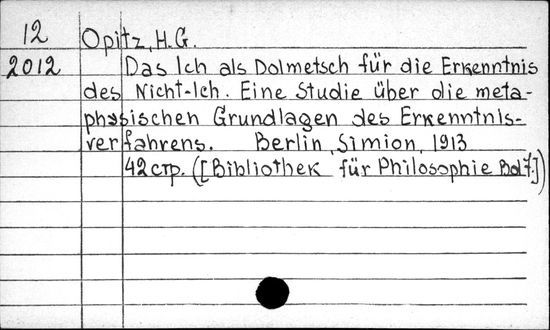 12
2012
Opitz, H.G.
Das Ich als Dolmetsch für die Erkenntnis
des Nicht-Ich. Eine Studie über die meta-
physischen Grundlagen des Erkenntnis-
verfahrens. Berlin, Simion, 1913
42 стр. ([Bibliothek für Philosophie Bd 7.])